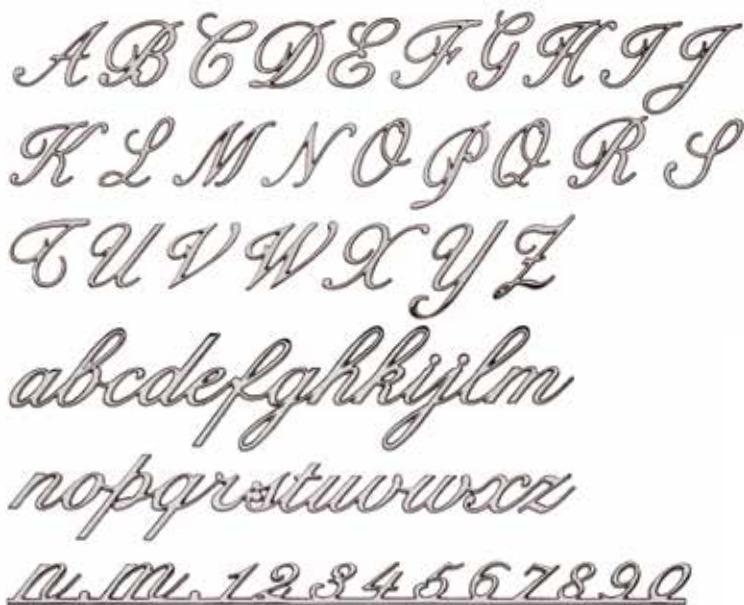 A B C D E F G H I J
K L M N O P Q R S
T U V W X Y Z
abcdefghkijlm
nopqrstuvwxz
n.m. 1 2 3 4 5 6 7 8 9 0